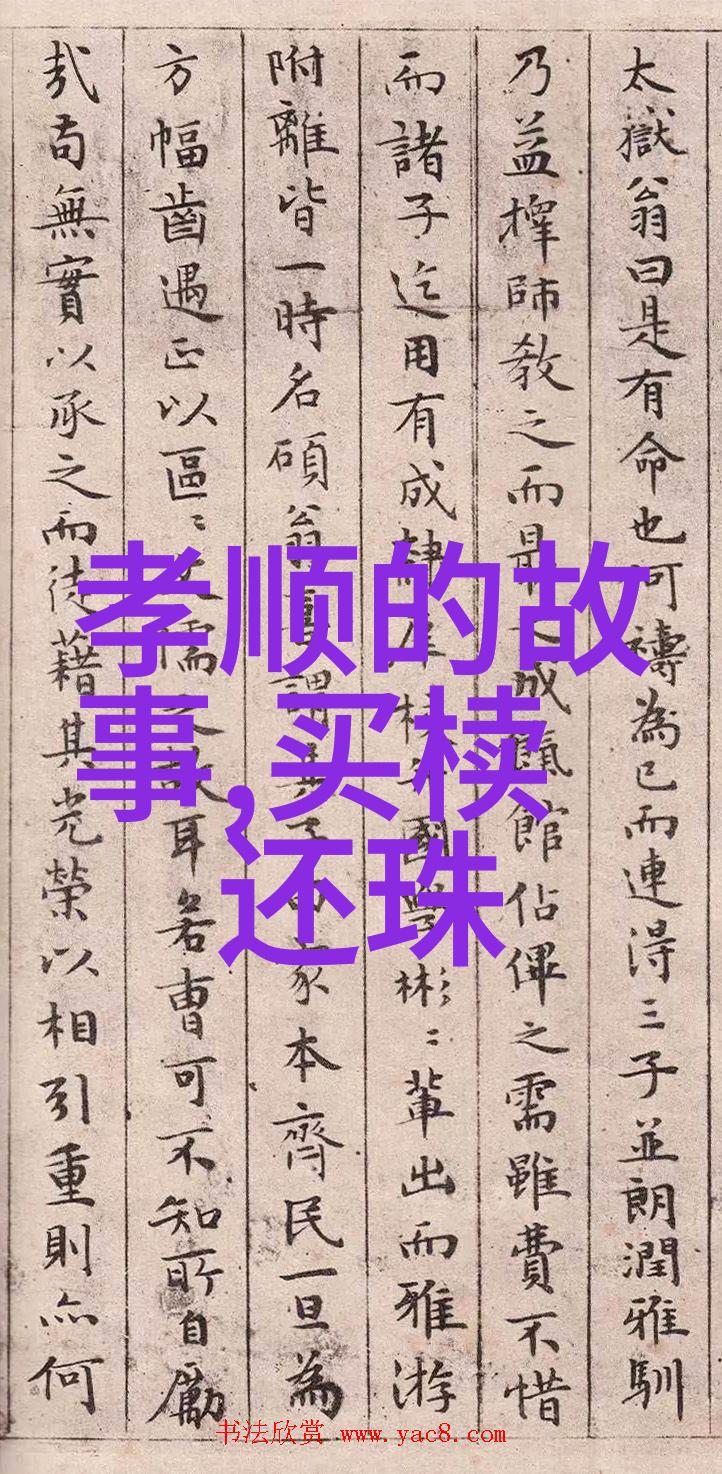 太嶽翁曰是有命也何禱為已而連得三子並朗潤雅馴
乃益擇師教之而最成餼館佔俾之需雖費不惜
而諸子迄用有成肄國學彬彬輩出而雅游
附離皆一時名碩翁謂其家本齊民一旦為
方幅齒遇正以區區文儒之故耳若曹可不知所自勵
哉苟無實以承之而徒藉其光榮以相引重則亦何
孝顺的故
事,买椟
还珠
书法欣赏 www.yac8.com